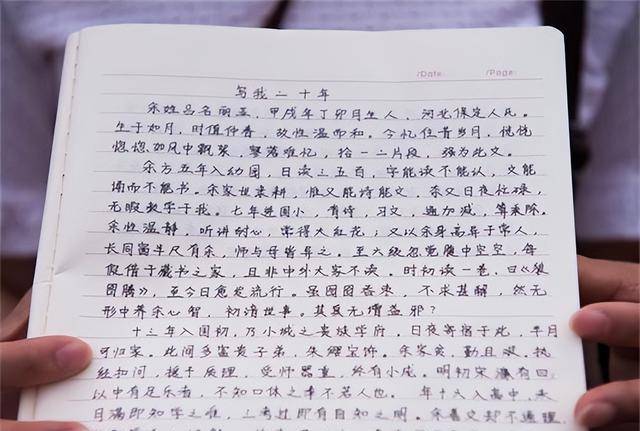 /Date: /Page:
写我二十年
余姓吕名丽孟，甲戌年丁卯月生人，河北保定人氏。
生于如月，时值仲春，故性温而和。今忆往昔岁月，恍恍
惚惚如风中飘絮，零落难忆，拾一二片段，强为此文。
余方五年入幼园，日读三五百，字能读不能认，文能
诵而不能书。余家世耒耕，惟父能诗能文，奈父日夜忙碌，
无暇教学于我。七年进国小，有诗，习文，通加减，算乘除。
余性温静，听讲耐心，常得大红花；又以余身高异于常人，
长同窗半尺有余，师与母皆异之。至六级忽觉腹中空空，每
假借于藏书之家，且非中外大家不读。时初读一卷，曰《狼
图腾》，至今日愈发流行。虽囫囵吞枣，不求甚解，然无
形中养余心智，初谙世事。其真无增益邪？
十三年入国初，乃小城之贵族学府。日夜寄宿于此，半月
可归家。此间多富贵子弟，朱缨宝饰。余家贫，勤且艰，执
经扣问，援于质理，受师器重，终有小成。明初宋濂有曰：
以中有足乐者，不知口体之奉不若人也。年十六入高中，
日满即知学之难，考过即有自知之明。余喜史却不通理，